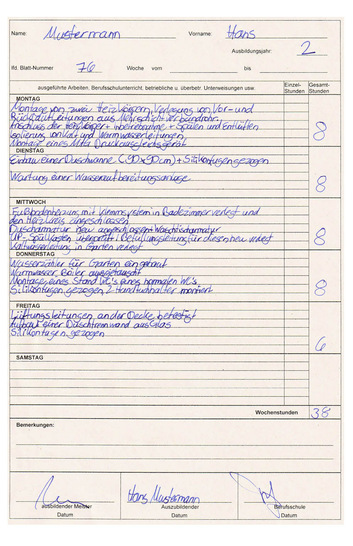 Name: Mustermann Vorname: Hans
Ausbildungsjahr: 2
lfd. Blatt-Nummer 76 Woche vom bis
ausgeführte Arbeiten, Berufsschulunterricht, betriebliche u. überbetr. Unterweisungen usw. Einzel-Stunden Gesamt-Stunden
MONTAG
Montage von zwei Heizkörpern, Verlegung von Vor- und
Rücklaufleitungen aus Mehrschichtverbundrohr,
Anschluss der Heizkörper + Inbetriebnahme + Spülen und Entlüften
Isolierung von Kalt und Warmwasserleitungen,
Montage eines
8
DIENSTAG
Einbau einer Duschwanne (90x90cm) + Silikonfugen gezogen
Wartung einer Wasseraufbereitungsanlage
8
MITTWOCH
Fußbodenheizung mit Klemmsystem in Badezimmer verlegt und
den Heizkreis angeschlossen
Duscharmatur neu angeschlossen Waschtischarmatur
UP-Spülkasten für diesen neu verlegt
in Garten verlegt
8
DONNERSTAG
Wasserzähler für Garten eingebaut
Warmwasser Boiler ausgetauscht
Montage eines Stand WC's eines normalen WC's
Silikonfugen gezogen, 2 Handtuchhalter montiert
8
FREITAG
Lüftungsleitungen an der Decke befestigt
Aufbau einer Duschtrennwand aus Glas
Silikonfugen gezogen
6
SAMSTAG
Wochenstunden 38
Bemerkungen:
Hans Mustermann
ausbildender Meister Auszubildender Berufsschule
Datum Datum Datum